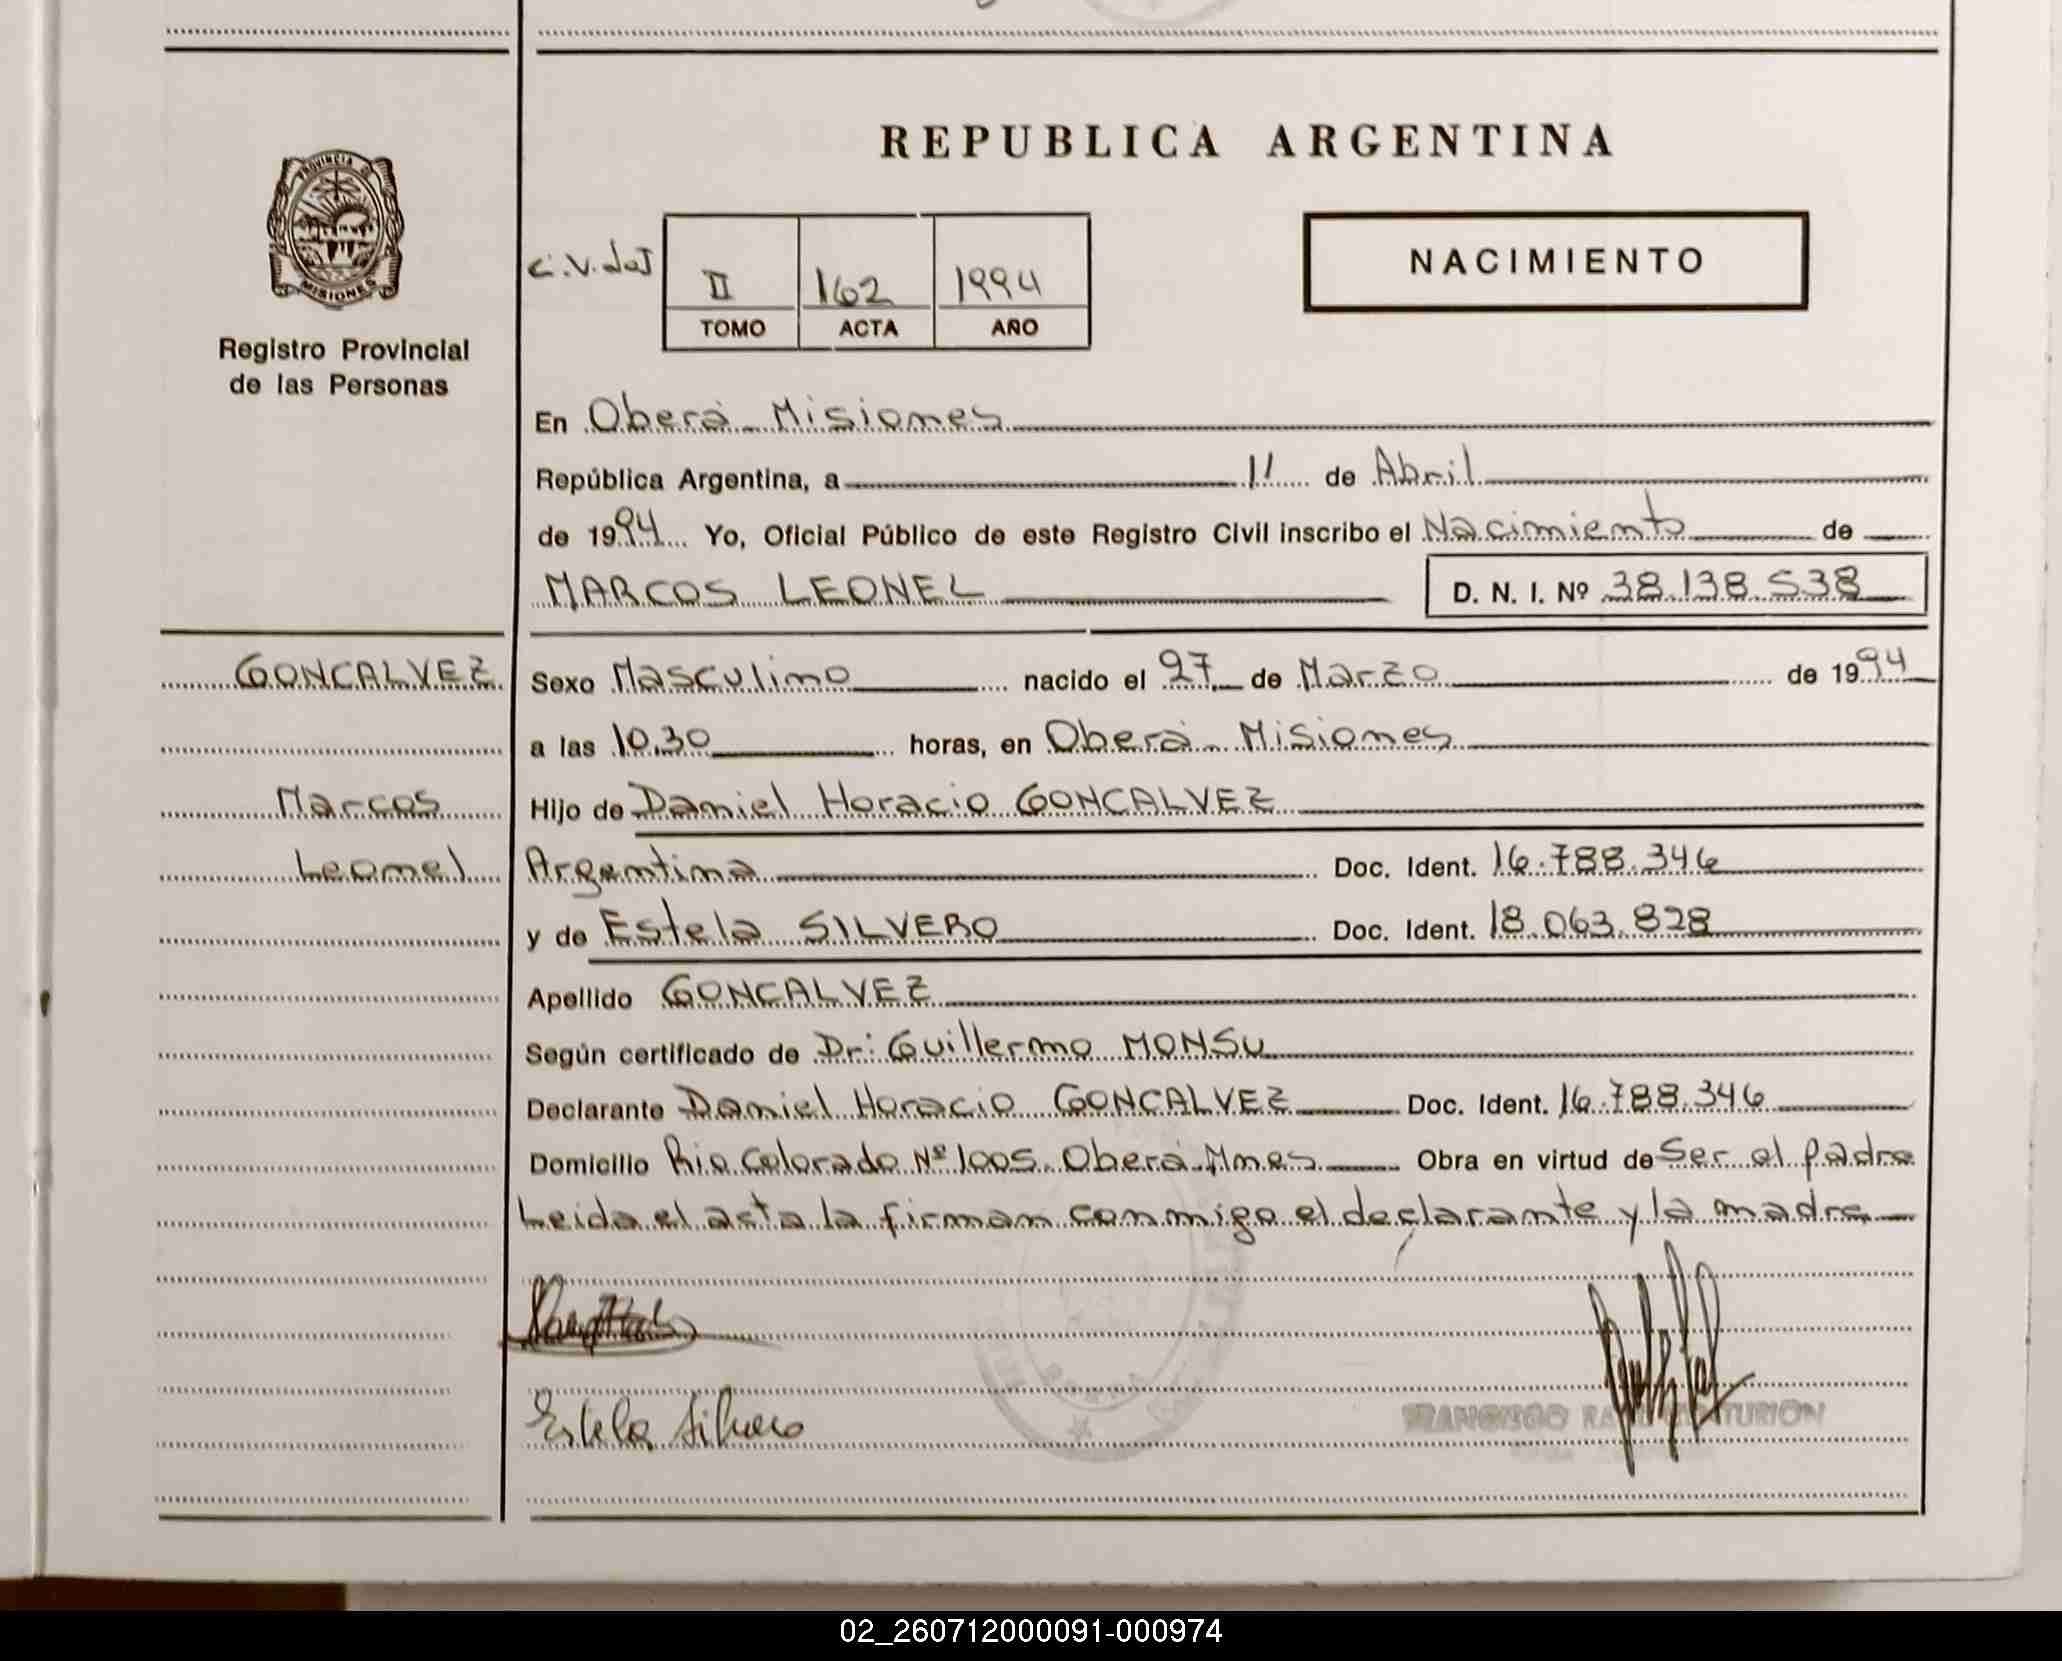 REPUBLICA ARGENTINA
PROVINCIA DE
MISIONES
Registro Provincial
de las Personas
II 162 1994
TOMO ACTA AÑO
NACIMIENTO
En Oberá - Misiones
República Argentina, a 11 de Abril
de 1994 Yo, Oficial Público de este Registro Civil inscribo el Nacimiento de
MARCOS LEONEL D. N. I. Nº 38.138.538
GONCALVEZ
Marcos
Leonel
Sexo Masculino nacido el 27 de Marzo de 1994
a las 10.30 horas, en Oberá - Misiones
Hijo de Daniel Horacio GONCALVEZ
Argentina Doc. Ident. 16.788.346
y de Estela SILVERO Doc. Ident. 18.063.828
Apellido GONCALVEZ
Según certificado de Dr: Guillermo MONSU
Declarante Daniel Horacio GONCALVEZ Doc. Ident. 16.788.346
Domicilio Rio Colorado Nº 1005. Oberá. Mnes Obra en virtud de Ser el padre
Leida el asta la firman conmigo el declarante y la madre
Estela Silvero
FRANCISCO
02_260712000091-000974